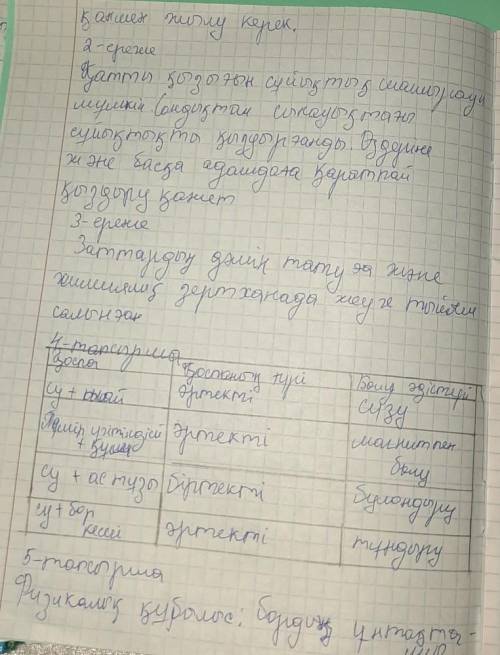 қанмен жылу керек.
2-ереже
Қатты қызыған сұйықтық шашырауы
мүмкін. Сондықтан сынауықтағы
сұйықтықты қыздырғанды. Өздеріне
және басқа адамдаға қаратпай
қыздыру қажет
3-ереже
Заттардың дәмін татуға және
химиялық зертханада жеуге тыйым
салынған
4-тапсырма
Қоспа Қоспаның түрі Бөлу әдістері
су + май әртекті сүзу
Темір үгіндісі + құм әртекті магнитпен бөлу
су + ас тұзы біртекті буландыру
су + бор кесегі әртекті тұндыру
5-тапсырма
Физикалық құбылыс: бордың ұнтақта-